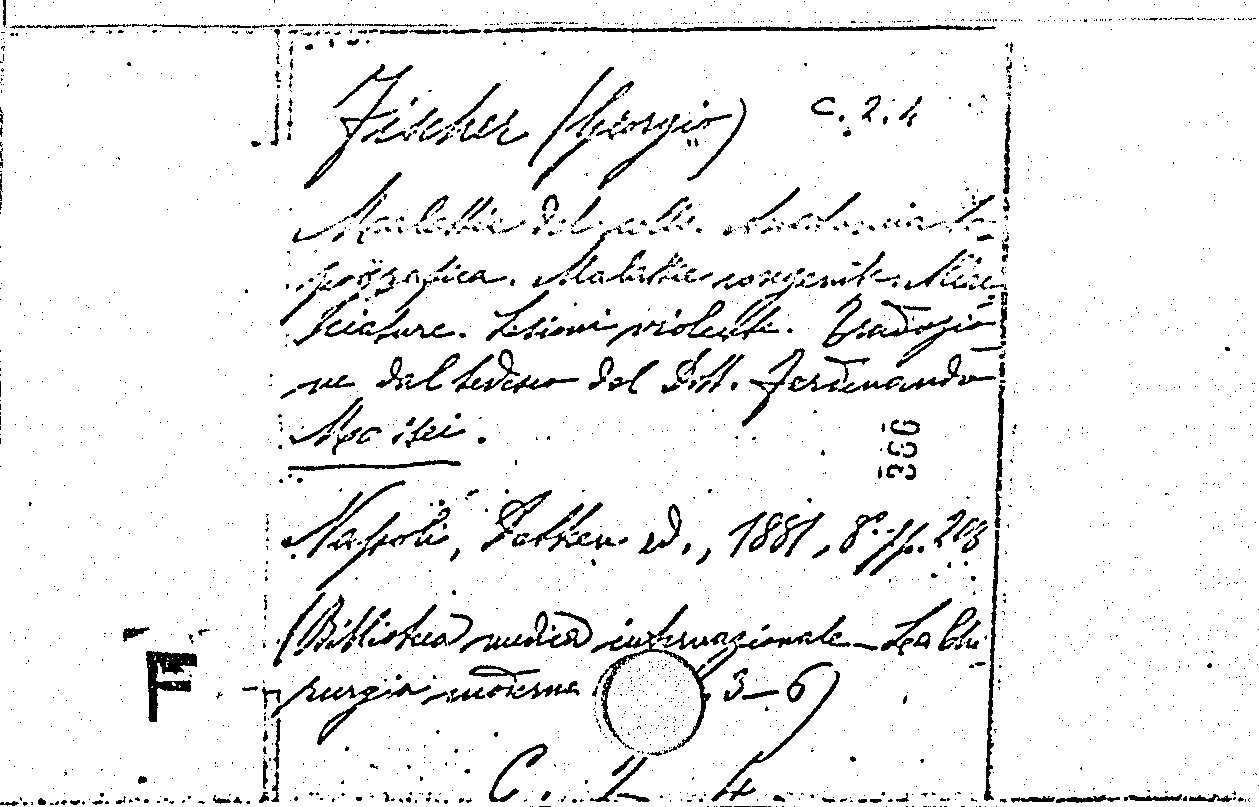 Fischer (Georgio) C. 2. 4
Malattie del collo. Anatomia to-
pografica. Malattie congenite. Stro-
zzature. Lesioni violente. Traduzio-
ne dal tedesco del Dott. Ferdinando
Massei.
366
Napoli, Detken ed., 1881, 8º. pp. 208
(Biblioteca medica internazionale – La Chi-
rurgia moderna 3–6)
F
C. 2 4